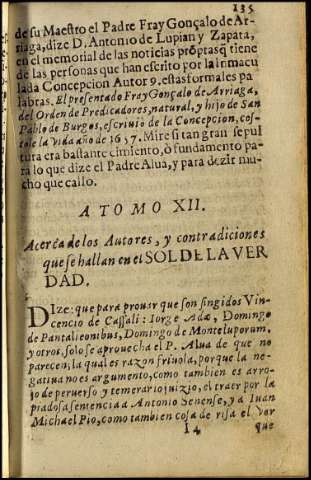 135
de su Maestro el Padre Fray Gonçalo de Ar-
riaga, dize D. Antonio de Lupian y Zapata,
en el memorial de las noticias prõptas q̃ tiene
de las personas que han escrito por la inmacu
lada Concepcion Autor 9. estas formales pa
labras. El presentado Fray Gonçalo de Arriaga,
del Orden de Predicadores, natural, y hijo de San
Pablo de Burgos, escriuiò de la Concepcion, cos-
tole la vida año de 1657. Mire si tan gran sepul
tura era bastante cimiento, ò fundamento pa-
ra lo que dize el Padre Alua, y para dezir mu-
cho que callo.
ATOMO XII.
Acerca de los Autores, y contradiciones
que se hallan en el SOL DE LA VER
DAD.
DIze: que para prouar que son fingidos Vin-
cencio de Cassali: Iorge Adæ, Domingo
de Pantaleonibus, Domingo de Monteluporum,
y otros, solo se aprouecha el P. Alua de que no
parecen, la qual es razon friuola, porque la ne-
gatiua no es argumento, como tambien es arro-
jo de peruerso y temerario juizio, el traer por la
piadosa sentencia a Antonio Senense, y a Iuan
Michael Pio, como tambien cosa de risa el
I4 que